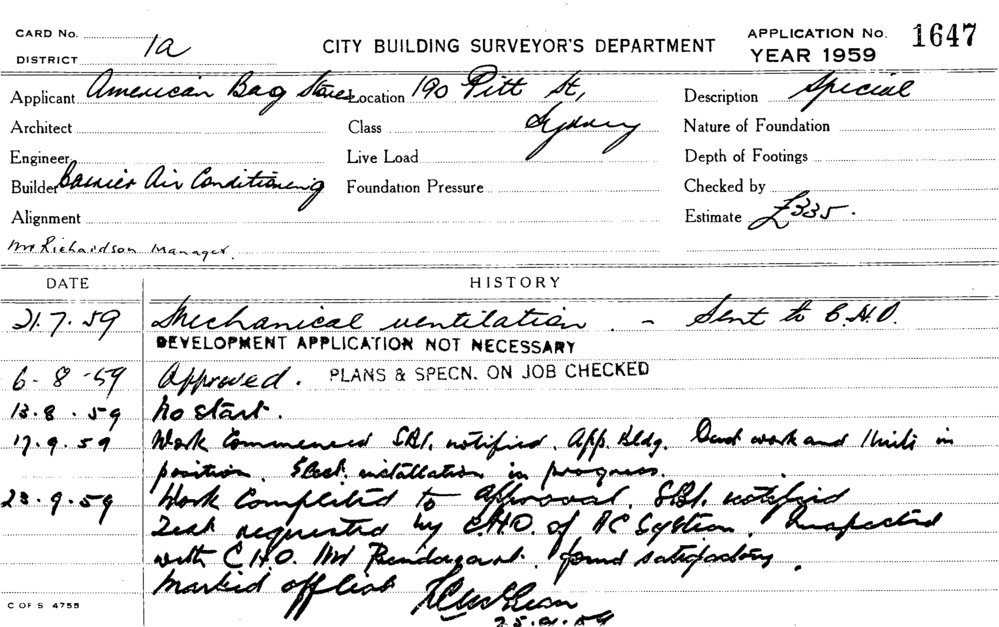 CARD No. 1a CITY BUILDING SURVEYOR'S DEPARTMENT APPLICATION No. 1647
DISTRICT YEAR 1959
Applicant American Bag Stores Location 190 Pitt St, Description Special
Architect Class Sydney Nature of Foundation
Engineer Live Load Depth of Footings
Builder Carrier Air Conditioning Foundation Pressure Checked by
Alignment Estimate £335.
Mr Richardson Manager.
DATE HISTORY
21.7.59 Mechanical ventilation. - Sent to C.H.O.
DEVELOPMENT APPLICATION NOT NECESSARY
6-8-59 Approved. PLANS & SPECN. ON JOB CHECKED
13.8.59 No start.
17.9.59 Work Commenced S.B.I. notified. App. Bldg. Duct work and Units in
position. Elect. installation in progress.
23.9.59 Work Completed to approval. S.B.I. notified
Test requested by C.H.O. of AC System. Inspected
with C.H.O. Mr found satisfactory.
Marked off list
25.9.59
C OF S 4755